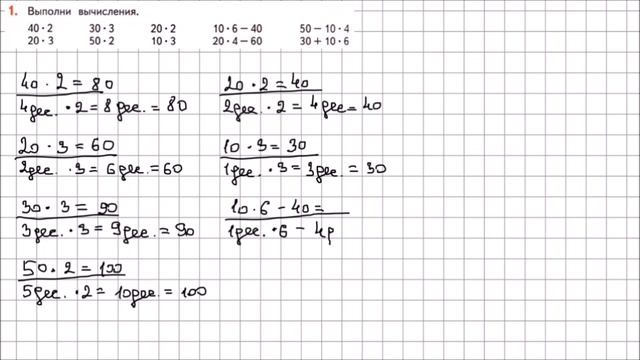 1. Выполни вычисления.
40 · 2 30 · 3 20 · 2 10 · 6 – 40 50 – 10 · 4
20 · 3 50 · 2 10 · 3 20 · 4 – 60 30 + 10 · 6
40 · 2 = 80
4дес. · 2 = 8дес. = 80
20 · 3 = 60
2дес. · 3 = 6дес. = 60
30 · 3 = 90
3дес. · 3 = 9дес. = 90
50 · 2 = 100
5дес. · 2 = 10дес. = 100
20 · 2 = 40
2дес. · 2 = 4дес = 40
10 · 3 = 30
1дес. · 3 = 3дес. = 30
10 · 6 – 40 =
1дес. · 6 – 4д